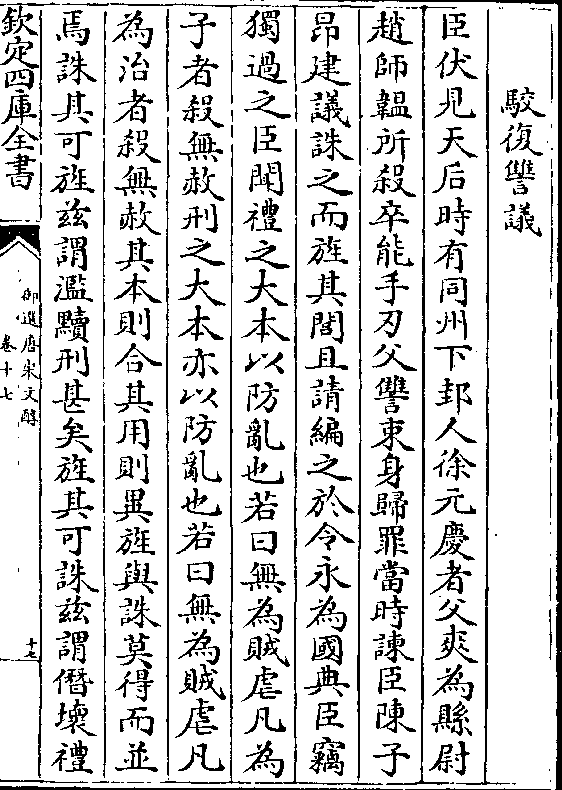 駮復讐議
臣伏見天后時有同州下邽人徐元慶者父爽為縣尉
趙師韞所殺卒能手刃父讐束身歸罪當時諫臣陳子
昂建議誅之而旌其閭且請編之於令永為國典臣竊
獨過之臣聞禮之大本以防亂也若曰無為賊虐凡為
子者殺無赦刑之大本亦以防亂也若曰無為賊虐凡
為治者殺無赦其本則合其用則異旌與誅莫得而並
焉誅其可旌兹謂濫黷刑甚矣旌其可誅兹謂僭壞禮
欽定四庫全書
御選唐宋文醇
卷十七